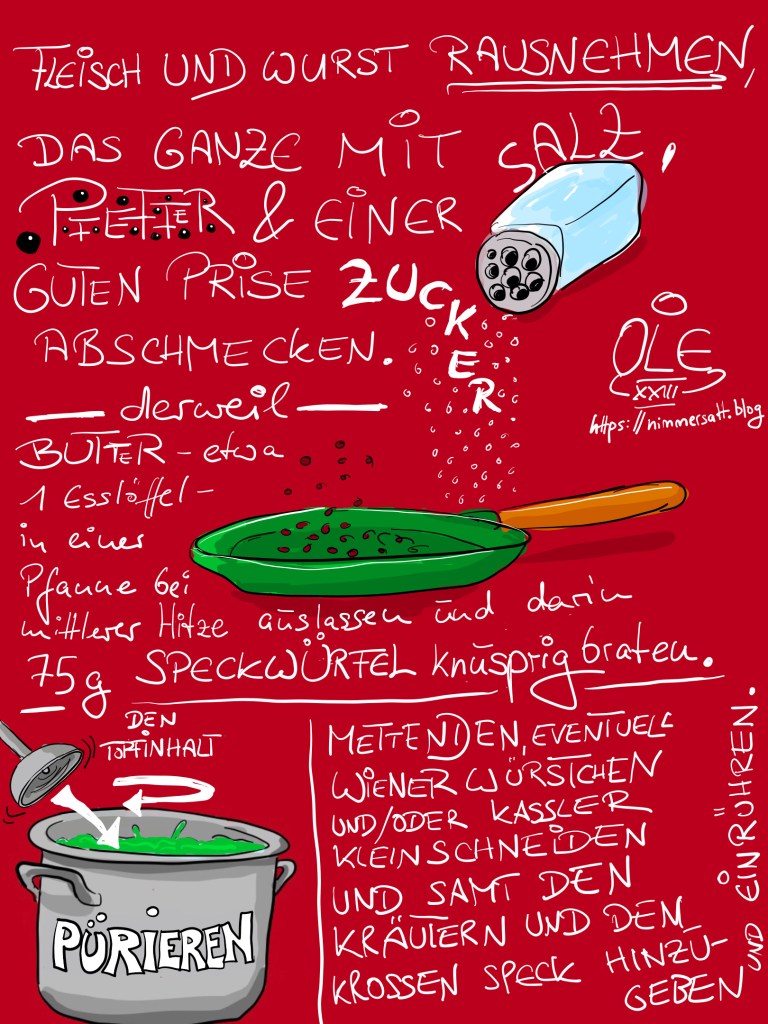 FLEISCH UND WURST RAUSNEHMEN,
DAS GANZE MIT SALZ,
PFEFFER & EINER
GUTEN PRISE ZUCKER
ABSCHMECKEN.
OLE
XXIII
https://nimmersatt.blog
— derweil —
BUTTER - etwa
1 Esslöffel -
in einer
Pfanne bei
mittlerer Hitze auslassen und darin
75g SPECKWÜRFEL knusprig braten.
DEN
TOPFINHALT
PÜRIEREN
METTENDEN, EVENTUELL
WIENER WÜRSTCHEN
UND/ODER KASSLER
KLEINSCHNEIDEN
UND SAMT DEN
KRÄUTERN UND DEM
KROSSEN SPECK HINZU-
GEBEN
UND EINRÜHREN.